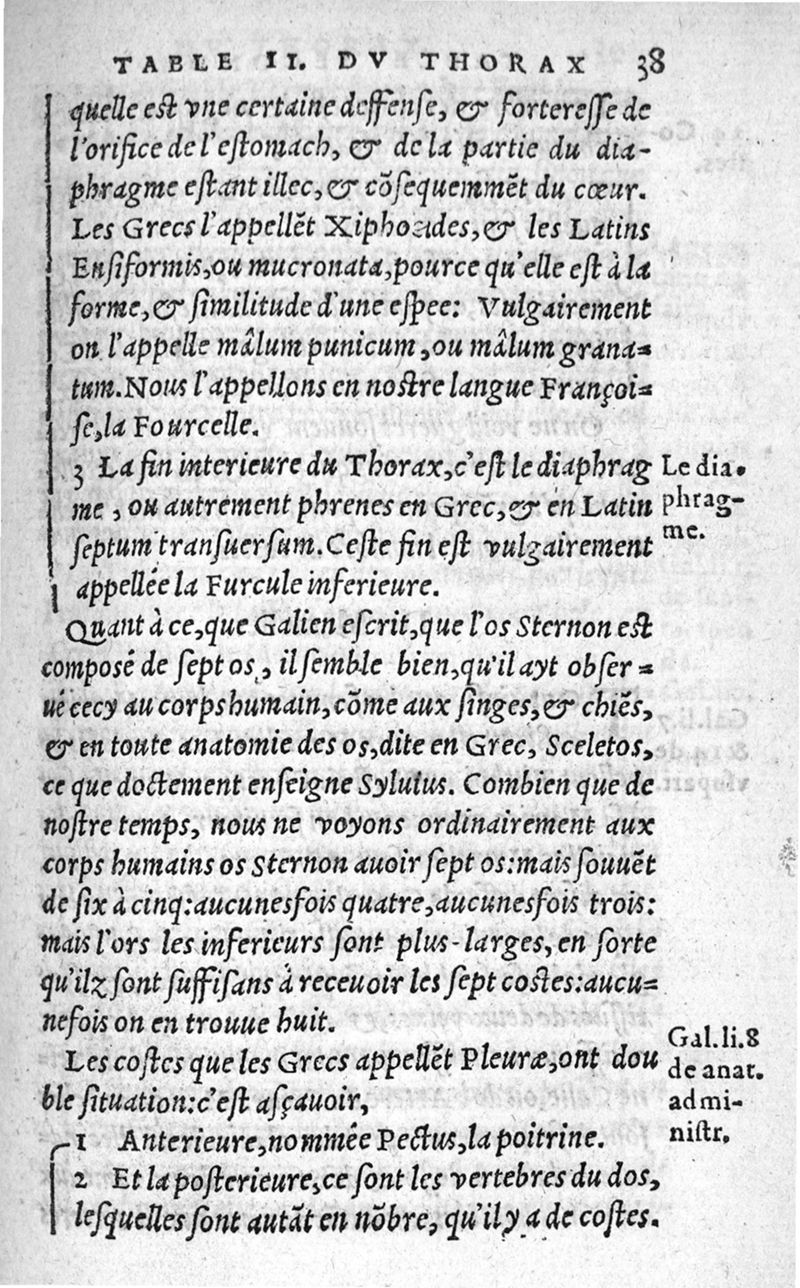 TABLE II. DV THORAX 38
quelle est vne certaine deffense, & forteresse de
l'orifice de l'estomach, & de la partie du dia-
phragme estant illec, & cõsequemmẽt du cœur.
Les Grecs l'appellẽt Xiphoides, & les Latins
Ensiformis, ou mucronata, pource qu'elle est à la
forme, & similitude d'une espee: Vulgairement
on l'appelle mâlum punicum, ou mâlum grana-
tum. Nous l'appellons en nostre langue Françoi-
se, la Fourcelle.
3 La fin interieure du Thorax, c'est le diaphrag
me, ou autrement phrenes en Grec, & en Latin
septum transuersum. Ceste fin est vulgairement
appellée la Furcule inferieure.
Le dia-
phrag-
me.
Quant à ce, que Galien escrit, que l'os Sternon est
composé de sept os, il semble bien, qu'il ayt obser-
ué cecy au corps humain, cõme aux singes, & chiẽs,
& en toute anatomie des os, dite en Grec, Sceletos,
ce que doctement enseigne Syluius. Combien que de
nostre temps, nous ne voyons ordinairement aux
corps humains os Sternon auoir sept os: mais souuẽt
de six à cinq: aucunesfois quatre, aucunesfois trois:
mais l'ors les inferieurs sont plus-larges, en sorte
qu'ilz sont suffisans à receuoir les sept costes: aucu-
nefois on en trouue huit.
Les costes que les Grecs appellẽt Pleuræ, ont dou
ble situation: c'est asçauoir,
Gal. li. 8
de anat.
admi-
nistr.
1 Anterieure, nommée Pectus, la poitrine.
2 Et la posterieure, ce sont les vertebres du dos,
lesquelles sont autãt en nõbre, qu'il y a de costes.